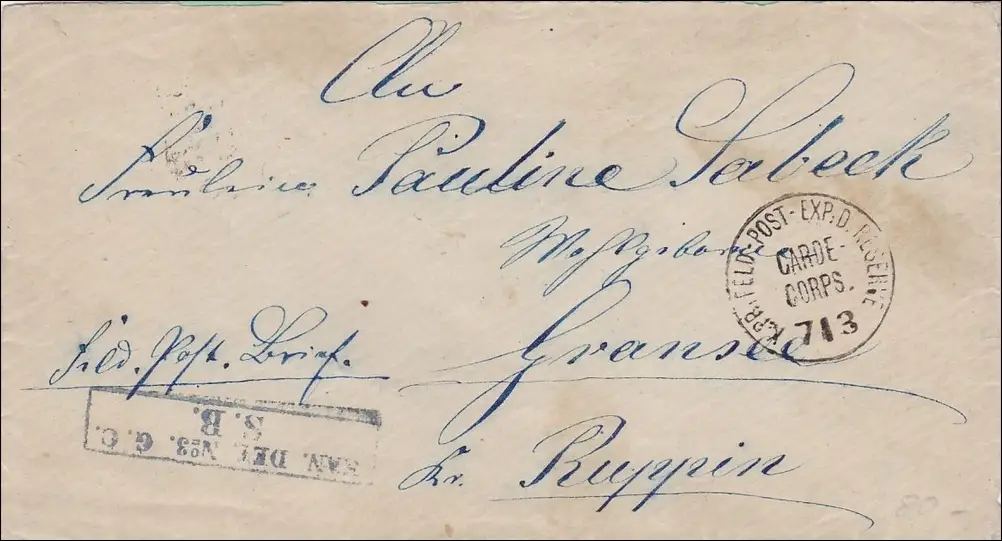 An
Fräulein Pauline Sabeck
Wohlgeboren
Gransee
Feld-Post-Brief.
Kr. Ruppin
K.PR.FELD-POST-EXP.D.RESERVE
GARDE-
CORPS.
713
SAN. DET. No3. G. C.
S. B.